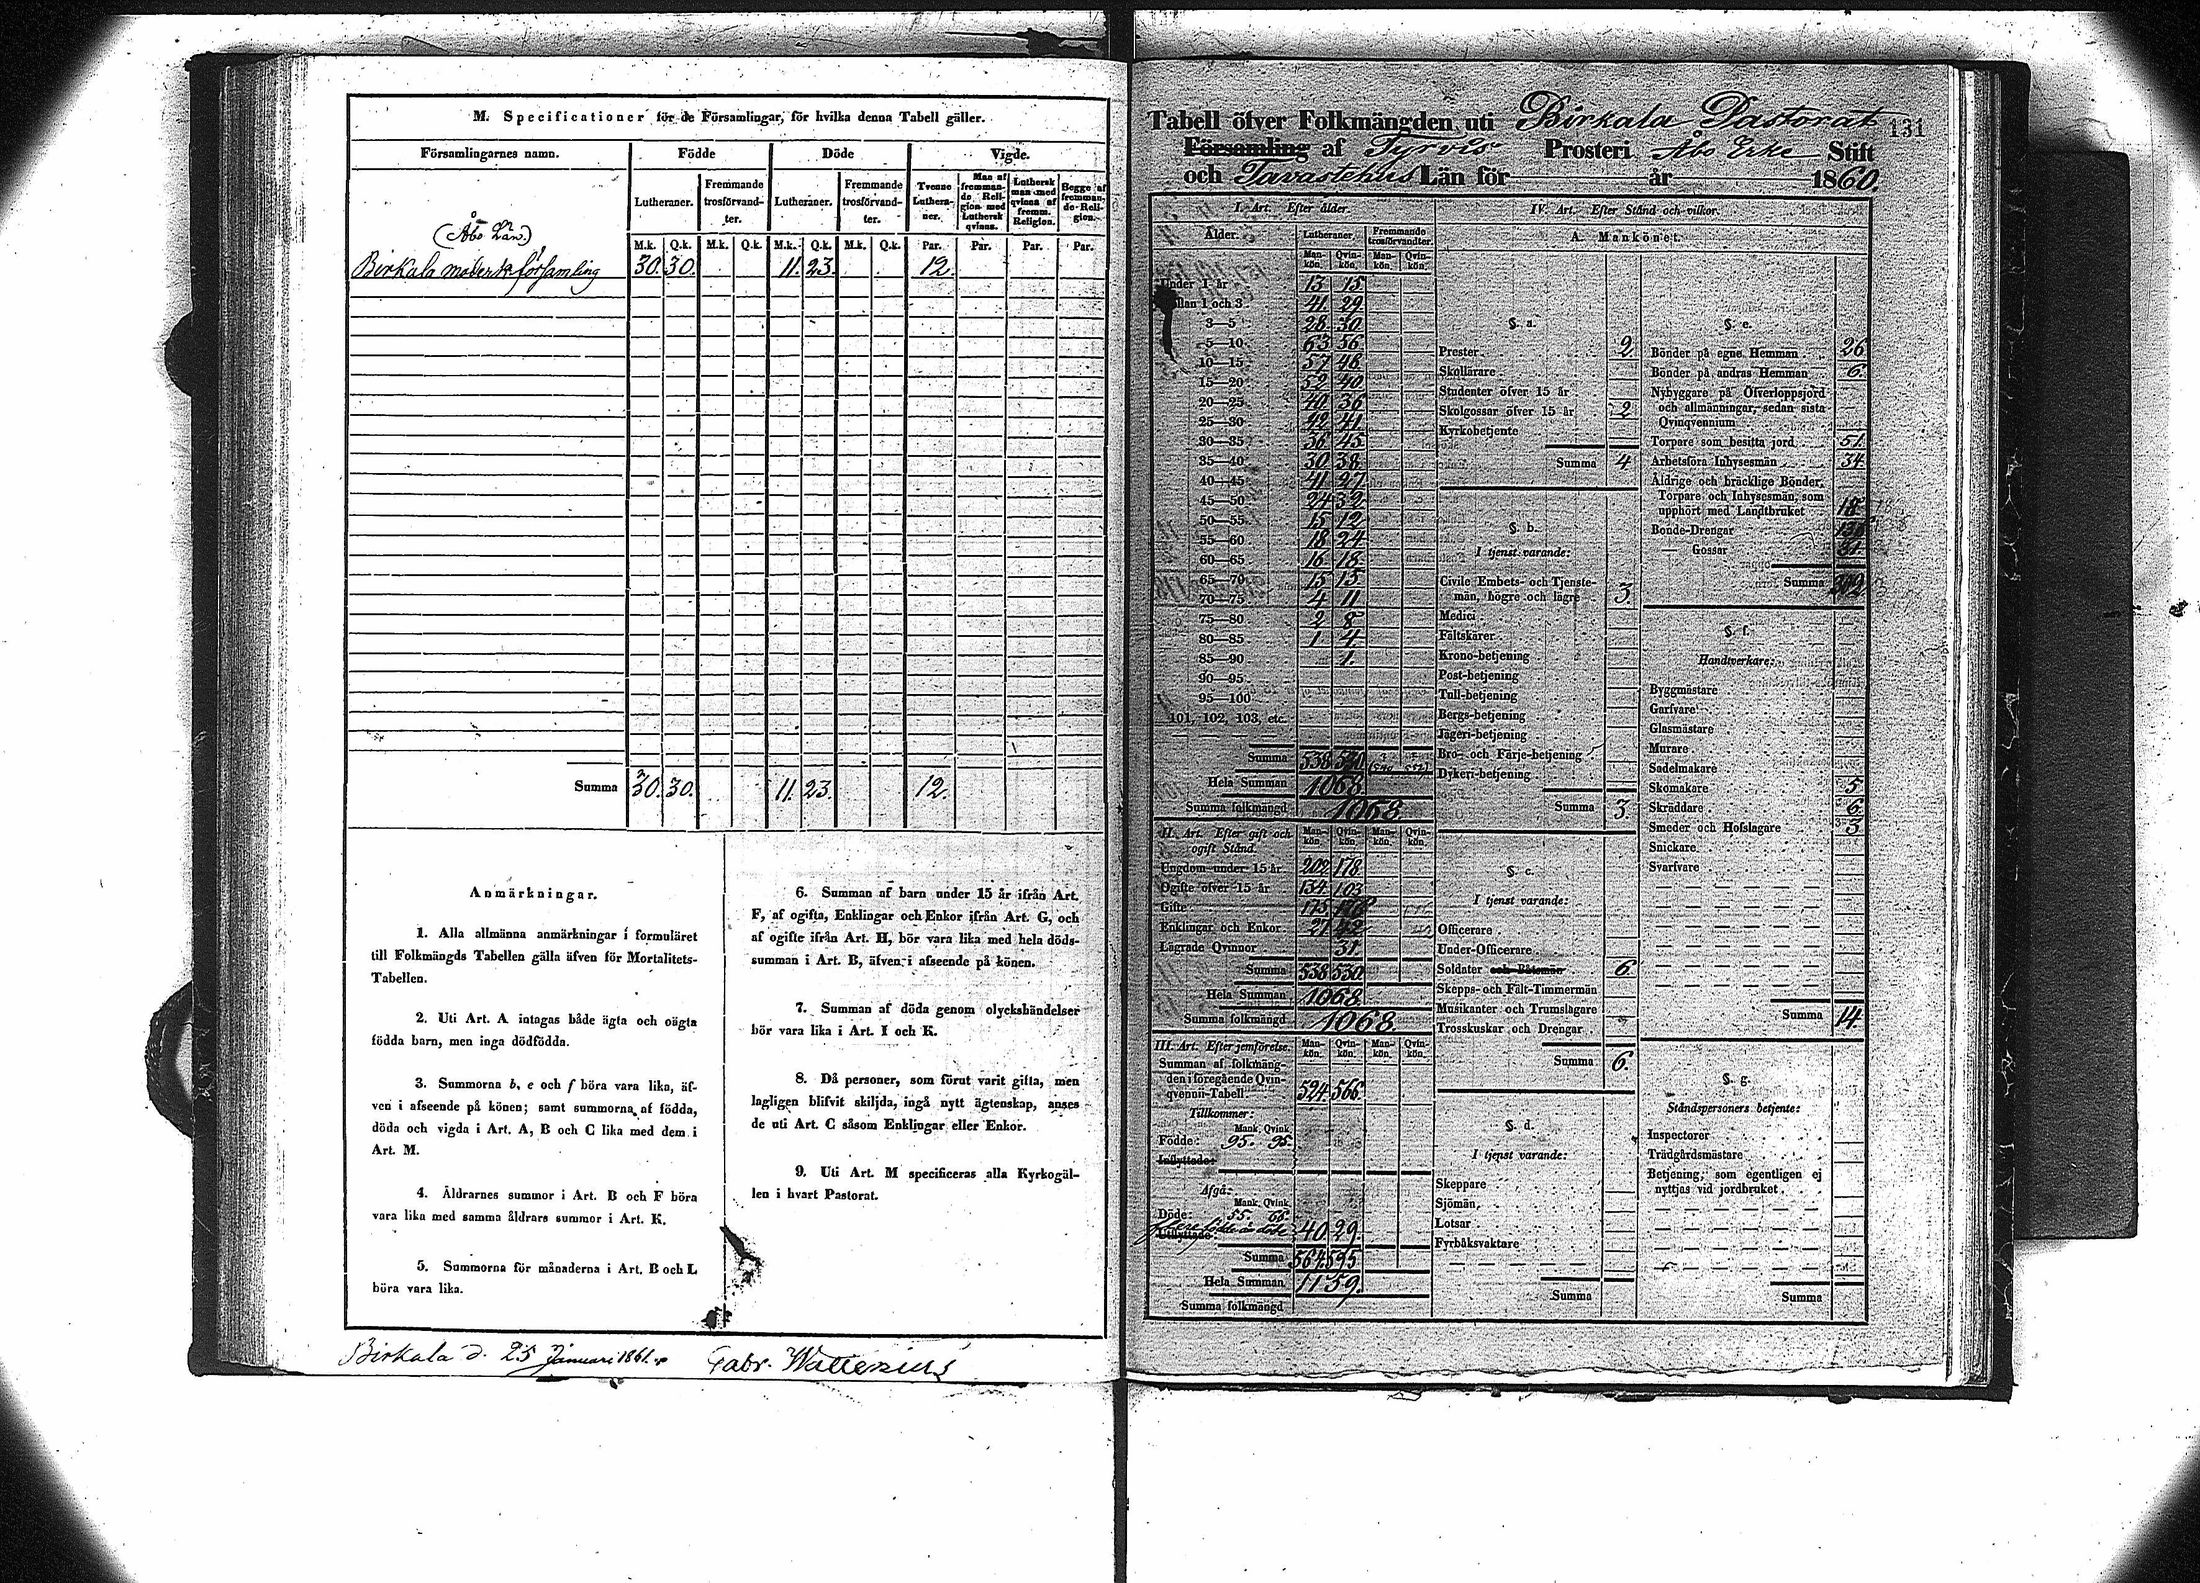 M. Specificationer för de Församlingar, för hvilka denna Tabell gäller.
Församlingarnes namn. Födde Döde Vigde.
Lutheraner. Fremmande trosförvandter. Lutheraner. Fremmande trosförvandter. Tvenne Lutheraner. Man af fremmande Religion med Luthersk qvinna. Luthersk man med qvinna af fremm. Religion. Begge af fremmande Religion.
M.k. Q.k. M.k. Q.k. M.k. Q.k. M.k. Q.k. Par. Par. Par. Par.
(Åbo Län.)
Birkala moderk församling 30. 30. 11. 23. 12.
Summa 30. 30. 11. 23. 12.
Anmärkningar.
1. Alla allmänna anmärkningar i formuläret
till Folkmängds Tabellen gälla äfven för Mortalitets-
Tabellen.
2. Uti Art. A intagas både ägta och oägta
födda barn, men inga dödfödda.
3. Summorna b, e och f böra vara lika, äf-
ven i afseende på könen; samt summorna af födda,
döda och vigda i Art. A, B och C lika med dem i
Art. M.
4. Åldrarnes summor i Art. B och F böra
vara lika med samma åldrars summor i Art. K.
5. Summorna för månaderna i Art. B och L
böra vara lika.
6. Summan af barn under 15 år ifrån Art.
F, af ogifta, Enklingar och Enkor ifrån Art. G, och
af ogifte ifrån Art. H, bör vara lika med hela döds-
summan i Art. B, äfven i afseende på könen.
7. Summan af döda genom olyckshändelser
bör vara lika i Art. I och K.
8. Då personer, som förut varit gifta, men
lagligen blifvit skiljda, ingå nytt ägtenskap, anses
de uti Art. C såsom Enklingar eller Enkor.
9. Uti Art. M specificeras alla Kyrkogäl-
len i hvart Pastorat.
Birkala d. 25 Januari 1861.
Tabell öfver Folkmängden uti Birkala Pastorat 131
Församling af Tyrvis Prosteri Åbo Erke Stift
och Tavastehus Län för år 1860.
I. Art. Efter ålder
Ålder. Lutheraner Fremmande trosförvandter.
Mankön. Qvinkön. Mankön. Qvinkön.
Under 1 år 13 15
1 och 3 41 29
3—5 28 30
5—10 63 56
10—15 57 48
15—20 52 40
20—25 40 36
25—30 42 41
30—35 36 45
35—40 30 38
40—45 41 27
45—50 24 32
50—55 15 12
55—60 18 24
60—65 16 18
65—70 15 15
70—75 4 11
75—80 2 8
80—85 1 4
85—90 1.
90—95
95—100
101, 102, 103, etc.
Summa 538 530
Hela Summan 1068.
Summa folkmängd 1068.
II. Art. Efter gift och ogift Stånd. Mankön. Qvinkön. Mankön. Qvinkön.
Ungdom under 15 år 202 178
Ogifte öfver 15 år 134 103
Gifte 175 176
Enklingar och Enkor 27 42
Lägrade Qvinnor 31.
Summa 538 530
Hela Summan 1068.
Summa folkmängd 1068.
III. Art. Efter jemförelse. Mankön. Qvinkön. Mankön. Qvinkön.
Summan af folkmäng-
den i föregående Qvin-
qvennii-Tabell 524. 566.
Tillkommer:
Mank. Qvink.
Födde: 95. 95.
Inflyttade:
Afgå:
Mank. Qvink.
Döde: 55. 66.
flere födde än döde 40. 29.
Utflyttade:
Summa 564. 595
Hela Summan 1159.
Summa folkmängd
IV. Art. Efter Stånd och vilkor.
A. Mankönet.
§. a.
Prester 2
Skollärare
Studenter öfver 15 år
Skolgossar öfver 15 år 2
Kyrkobetjente
Summa 4
§. b.
I tjenst varande:
Civile Embets- och Tjenste-
män, högre och lägre 3.
Medici
Fältskärer
Krono-betjening
Post-betjening
Tull-betjening
Bergs-betjening
Jägeri-betjening
Bro- och Färje-betjening
Dykeri-betjening
Summa 3.
§. c.
I tjenst varande:
Officerare
Under-Officerare
Soldater och Båtsmän 6.
Skepps- och Fält-Timmermän
Musikanter och Trumslagare
Trosskuskar och Drengar
Summa 6.
§. d.
I tjenst varande:
Skeppare
Sjömän
Lotsar
Fyrbåksvaktare
Summa
§. e.
Bönder på egne Hemman 26
Bönder på andras Hemman 6.
Nybyggare på Öfverloppsjord
och allmänningar, sedan sista
Qvinqvennium
Torpare som besitta jord 51.
Arbetsföra Inhysesmän 34
Åldrige och bräcklige Bönder,
Torpare och Inhysesmän, som
upphört med Landtbruket 18
Bonde-Drengar
— Gossar 31.
Summa
§. f.
Handtverkare:
Byggmästare
Garfvare
Glasmästare
Murare
Sadelmakare
Skomakare 5
Skräddare 6.
Smeder och Hofslagare 3
Snickare
Svarfvare
Summa 14.
§. g.
Ståndspersoners betjente:
Inspectorer
Trädgårdsmästare
Betjening, som egentligen ej
nyttjas vid jordbruket
Summa